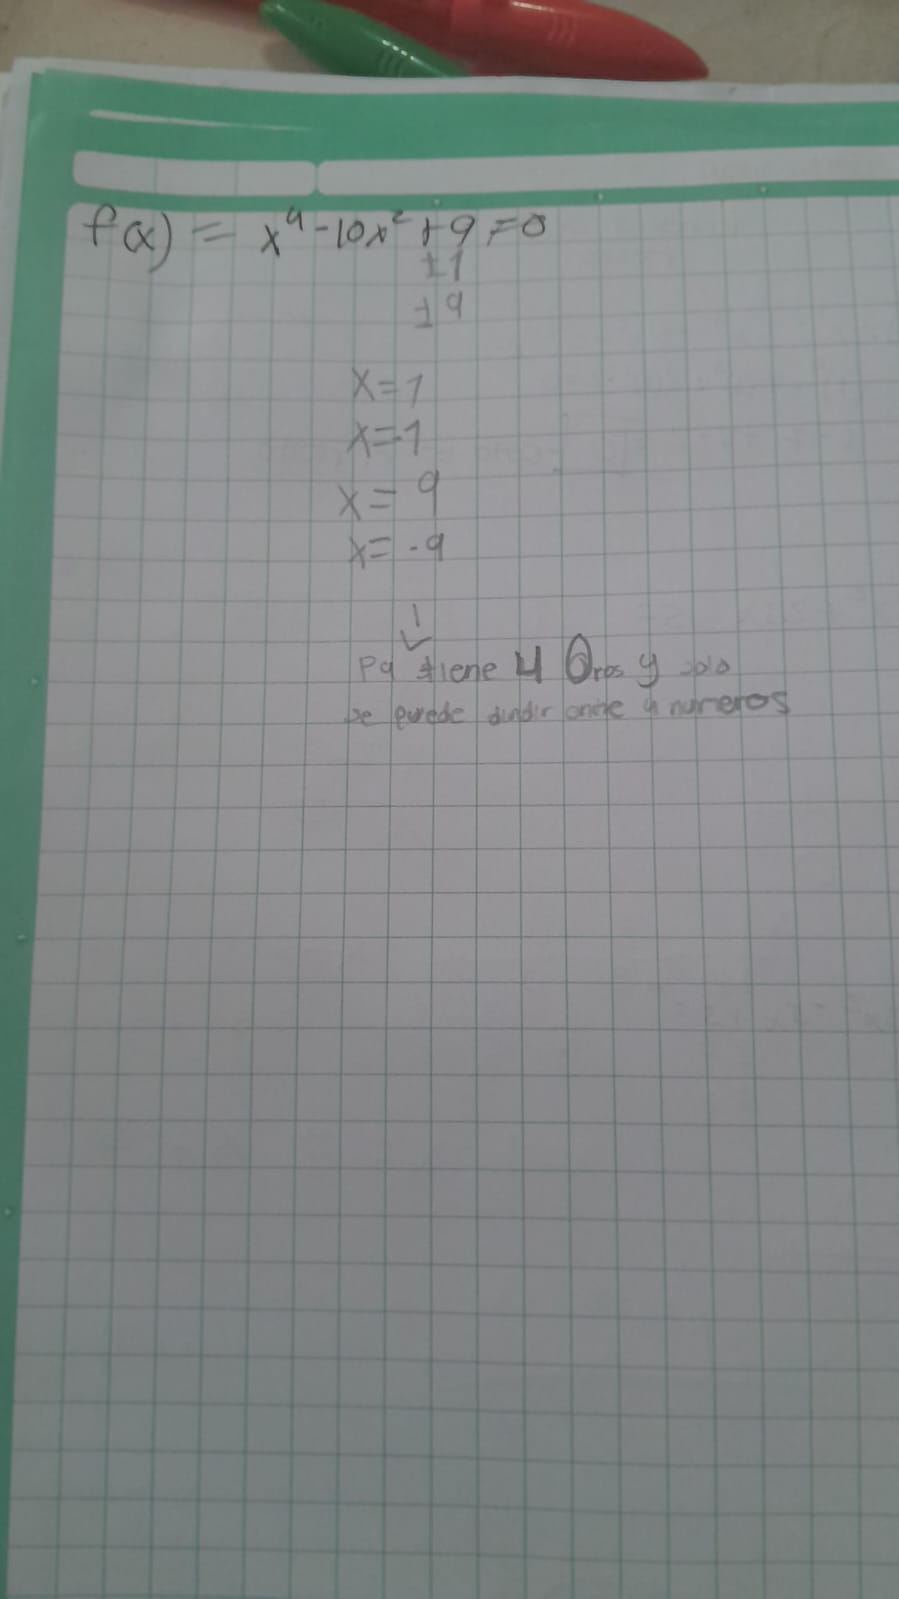 f(x) = x⁴-10x²+9=0
±1
±9
x=1
x=-1
x= 9
x= -9
Pq tiene 4 0ros y solo
se puede dividir entre 4 numeros